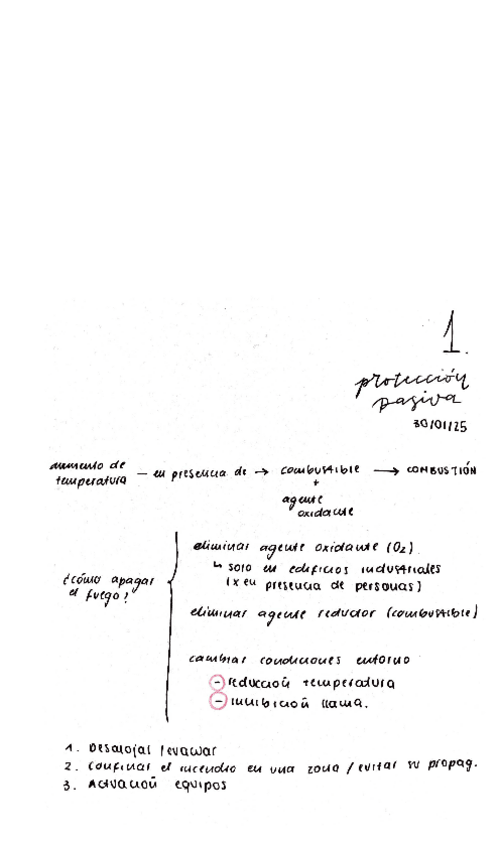 1.
protección
pasiva
30/01/25
aumento de
temperatura — en presencia de → combustible → COMBUSTIÓN
+
agente
oxidante
¿cómo apagar
el fuego?
eliminar agente oxidante (O₂)
↳ solo en edificios industriales
(x en presencia de personas)
eliminar agente reductor (combustible)
cambiar condiciones entorno
- reducción temperatura
- inhibición llama.
1. Desalojal / evacuar
2. Confinar el incendio en una zona / evitar su propag.
3. Activación equipos